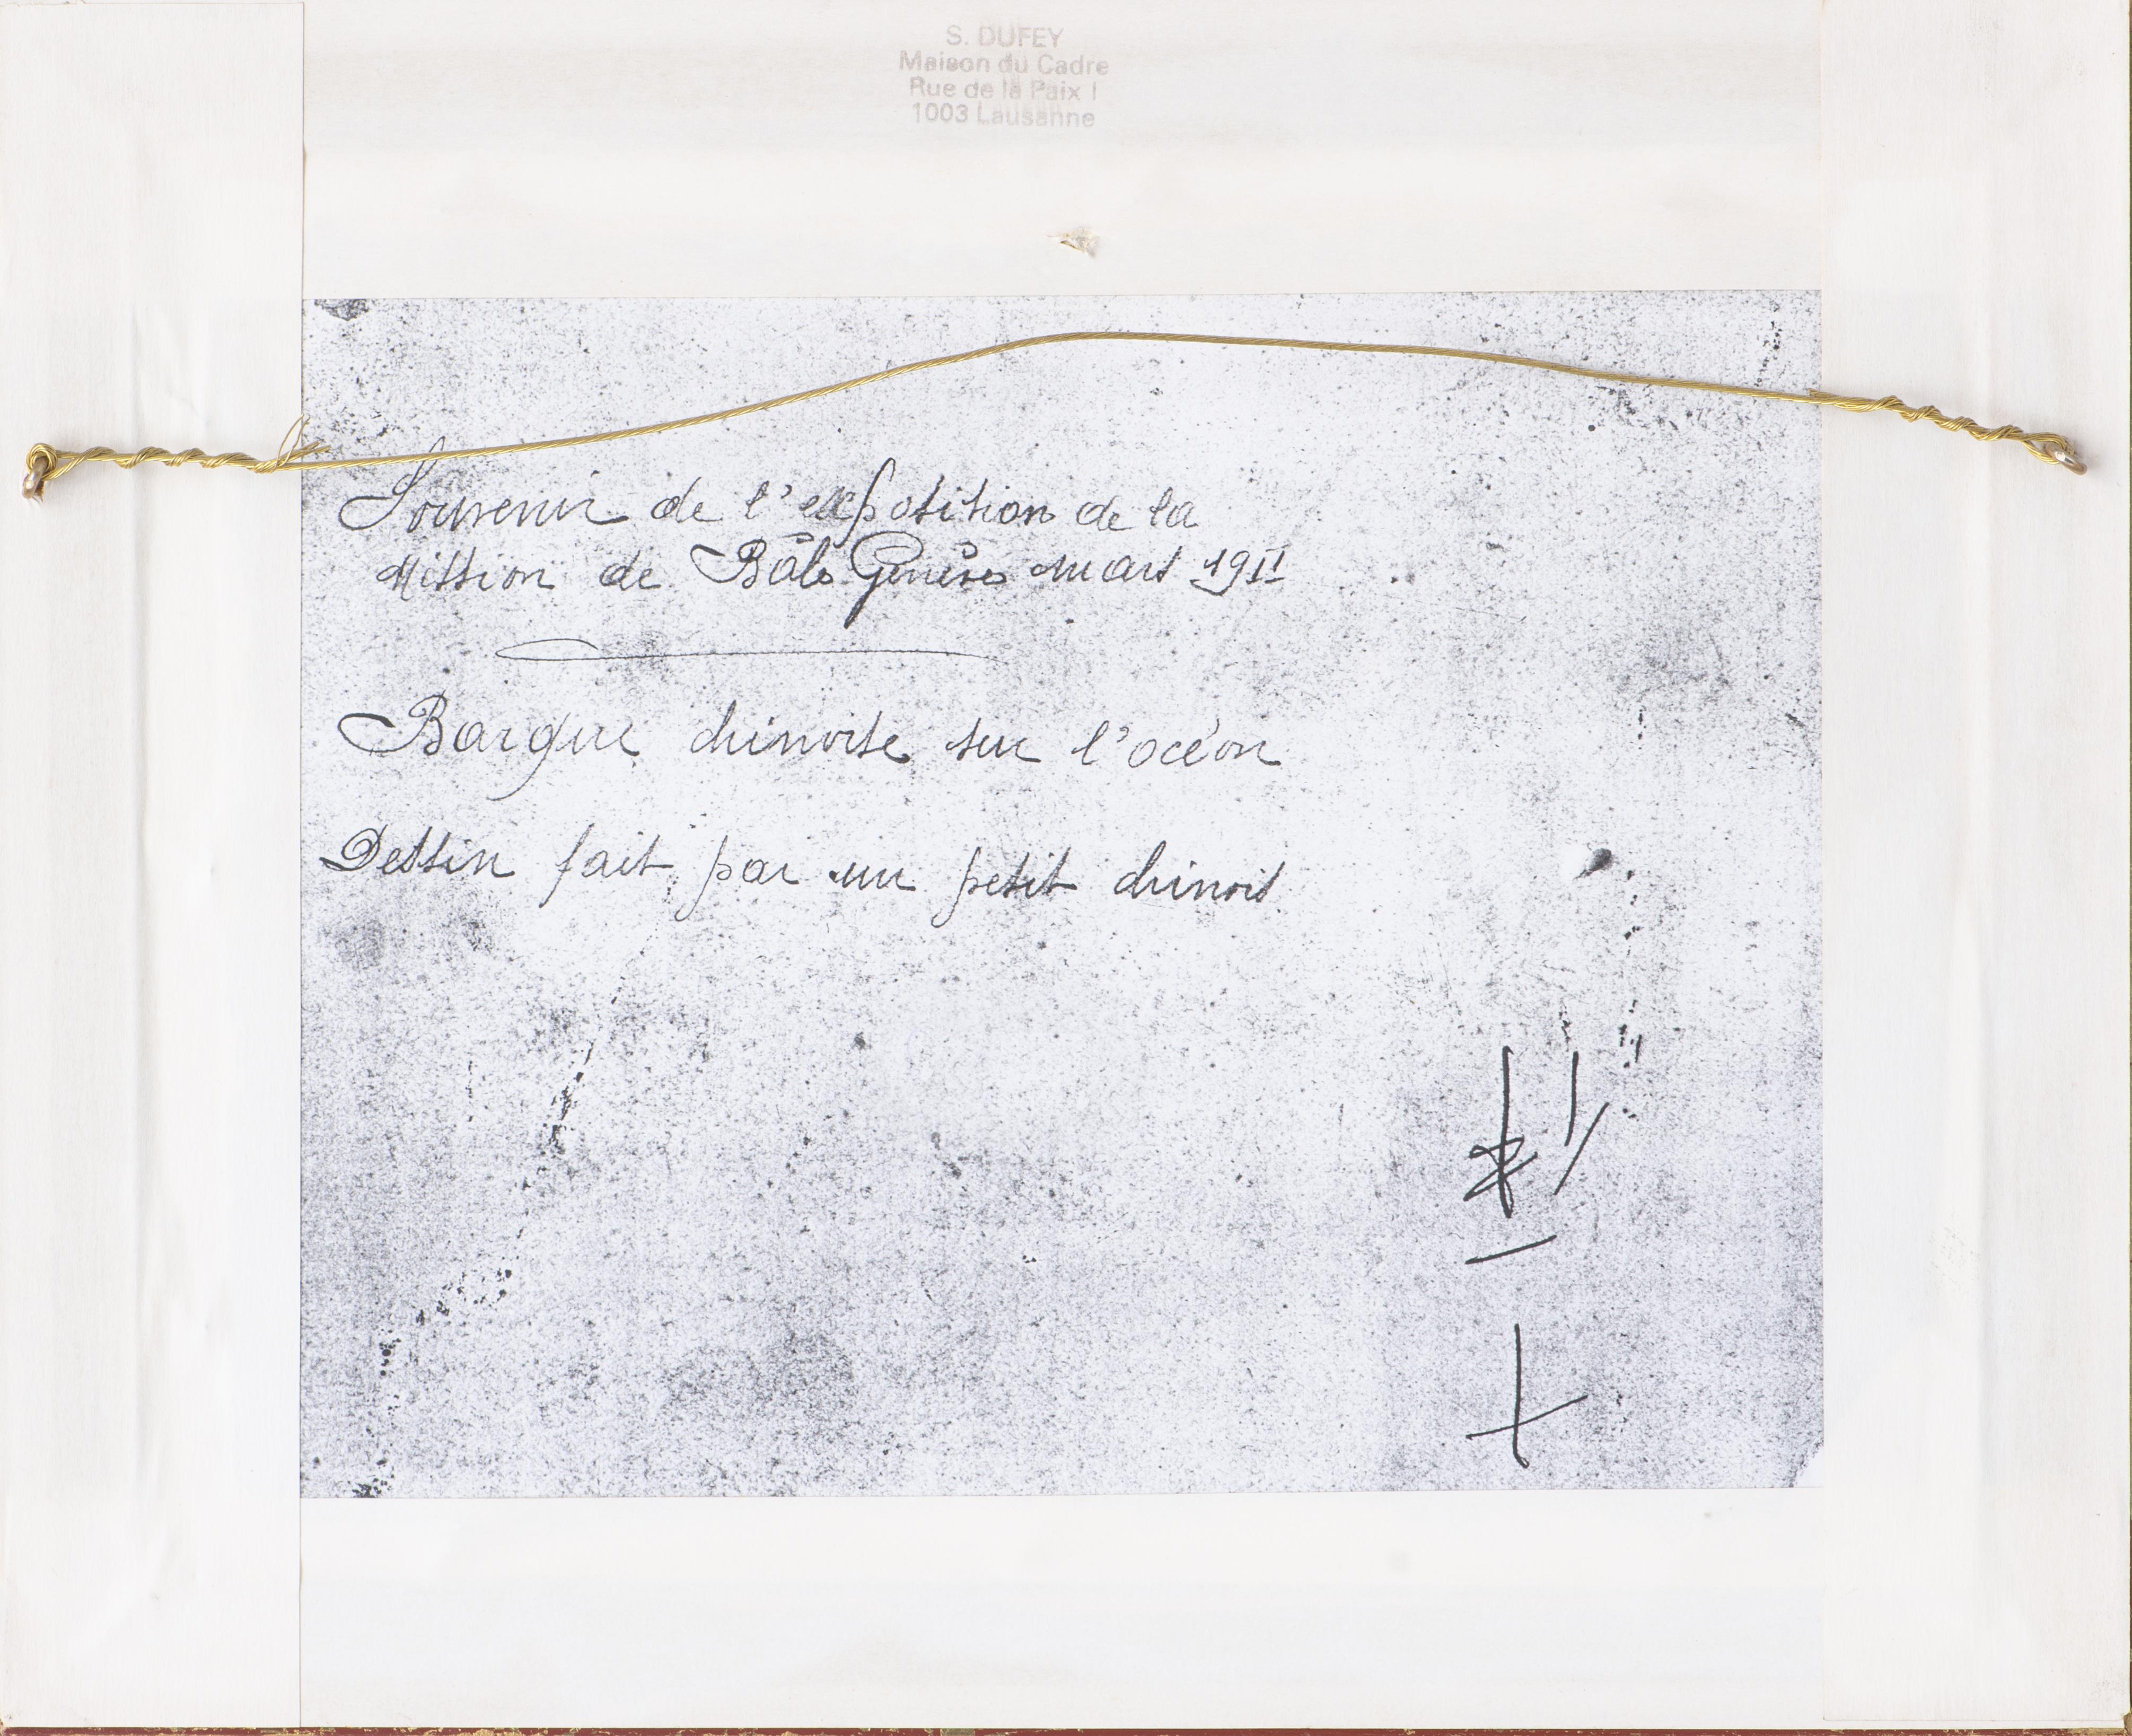 S. DUFEY
Maison du Cadre
Rue de la Paix 1
1003 Lausanne
Souvenir de l'exposition de la
Mission de Bâle Genève mars 1911
Barque chinoise sur l'océan
Dessin fait par un petit chinois
一
十